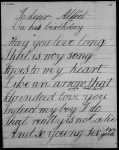 To dear Alfred
On his birthday
May you live long
That is my song
Goes to my heart
Like an arrow that
indeed love you
Indeed my boy I do
That really is not a lie
And so young